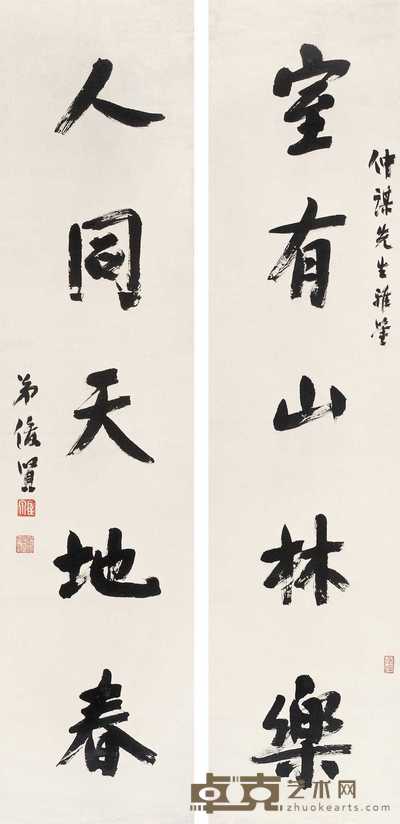 仲謀先生雅鑒
室有山林樂
人同天地春
弟俊賢
卓克艺术网
zhuokearts.com